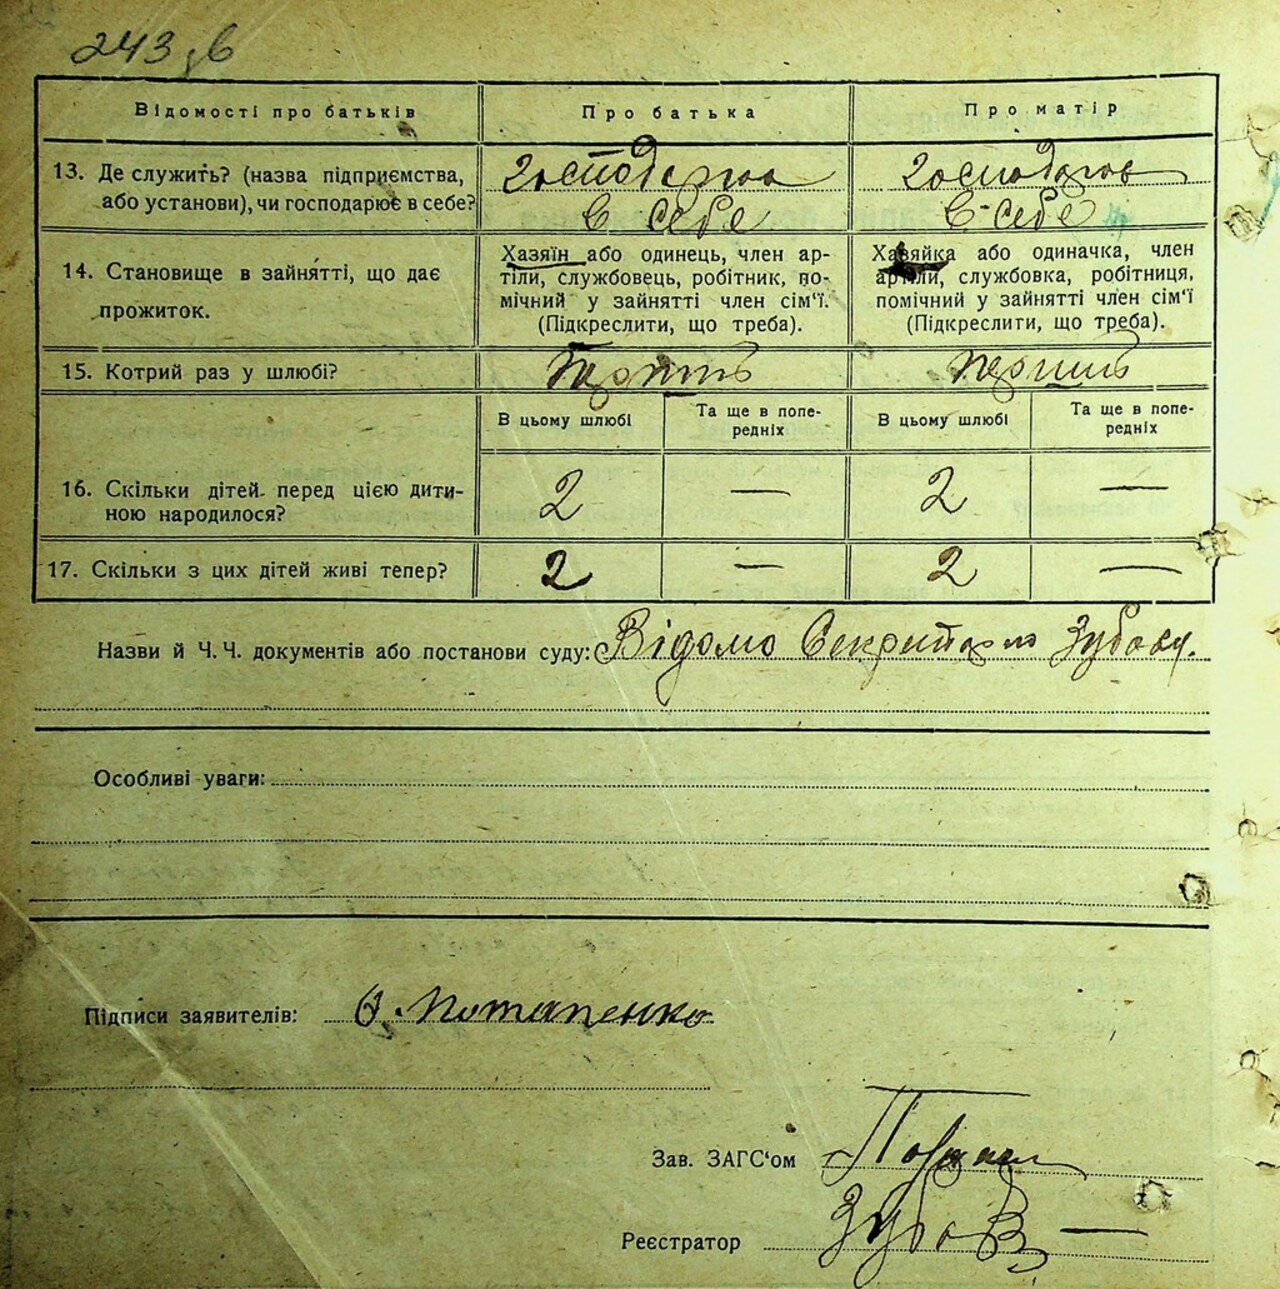 243 зв
Відомості про батьків
Про батька
Про матір
13. Де служить? (назва підприємства,
або установи), чи господарює в себе?
господарює
в себе
господарює
в себе
14. Становище в зайнятті, що дає
прожиток.
Хазяїн або одинець, член ар-
тіли, службовець, робітник, по-
мічний у зайнятті член сім'ї.
(Підкреслити, що треба).
Хазяйка або одиначка, член
артіли, службовка, робітниця,
помічний у зайнятті член сім'ї
(Підкреслити, що треба).
15. Котрий раз у шлюбі?
В цьому шлюбі
Та ще в попе-
редніх
В цьому шлюбі
Та ще в попе-
редніх
16. Скільки дітей перед цією дити-
ною народилося?
2 — 2 —
17. Скільки з цих дітей живі тепер?
2 — 2 —
Назви й Ч. Ч. документів або постанови суду: Відомо Секретарю Зубову.
Особливі уваги:
Підписи заявителів: Потапенко
Зав. ЗАГС'ом
Реєстратор Зубов